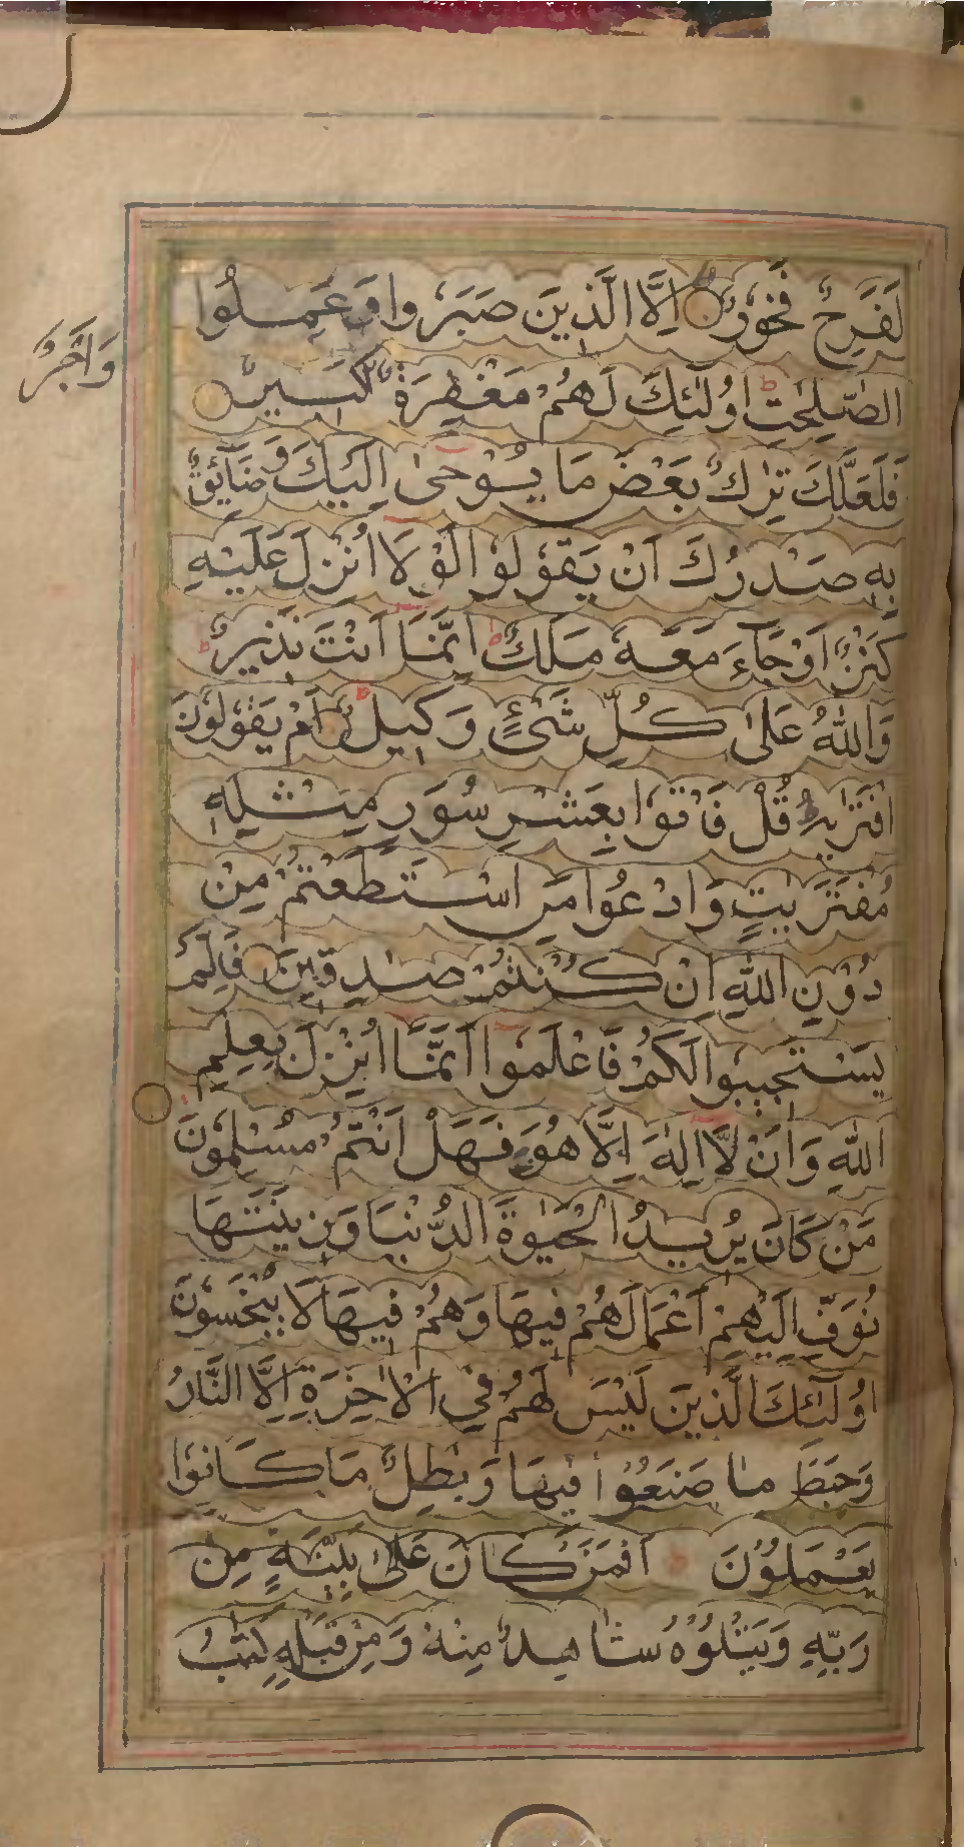 لَفَرِحٌ فَخُوْرٌ اِلَّا الَّذِيْنَ صَبَرُوا وَعَمِلُوا
الصّٰلِحٰتِ اُولٰٓئِكَ لَهُمْ مَغْفِرَةٌ كَبِيْرٌ
وَاَجْرٌ
فَلَعَلَّكَ تٰرِكٌ بَعْضَ مَا يُوْحٰى اِلَيْكَ وَضَآئِقٌ
بِهٖ صَدْرُكَ اَنْ يَقُوْلُوْا لَوْ لَا اُنْزِلَ عَلَيْهِ
كَنْزٌ اَوْ جَآءَ مَعَهٗ مَلَكٌ اِنَّمَا اَنْتَ نَذِيْرٌ
وَاللّٰهُ عَلٰى كُلِّ شَىْءٍ وَكِيْلٌ اَمْ يَقُوْلُوْنَ
افْتَرٰىهُ قُلْ فَاْتُوْا بِعَشْرِ سُوَرٍ مِثْلِهٖ
مُفْتَرَيٰتٍ وَادْعُوا مَنِ اسْتَطَعْتُمْ مِنْ
دُوْنِ اللّٰهِ اِنْ كُنْتُمْ صٰدِقِيْنَ فَاِلَّمْ
يَسْتَجِيْبُوا لَكُمْ فَاعْلَمُوا اَنَّمَا اُنْزِلَ بِعِلْمِ
اللّٰهِ وَاَنْ لَّا اِلٰهَ اِلَّا هُوَ فَهَلْ اَنْتُمْ مُسْلِمُوْنَ
مَنْ كَانَ يُرِيْدُ الْحَيٰوةَ الدُّنْيَا وَزِيْنَتَهَا
نُوَفِّ اِلَيْهِمْ اَعْمَالَهُمْ فِيْهَا وَهُمْ فِيْهَا لَا يُبْخَسُوْنَ
اُولٰٓئِكَ الَّذِيْنَ لَيْسَ لَهُمْ فِي الْاٰخِرَةِ اِلَّا النَّارُ
وَحَبِطَ مَا صَنَعُوْا فِيْهَا وَبٰطِلٌ مَا كَانُوْا
يَعْمَلُوْنَ اَفَمَنْ كَانَ عَلٰى بَيِّنَةٍ مِنْ
رَبِّهٖ وَيَتْلُوْهُ شَاهِدٌ مِنْهُ وَمِنْ قَبْلِهٖ كِتٰبُ